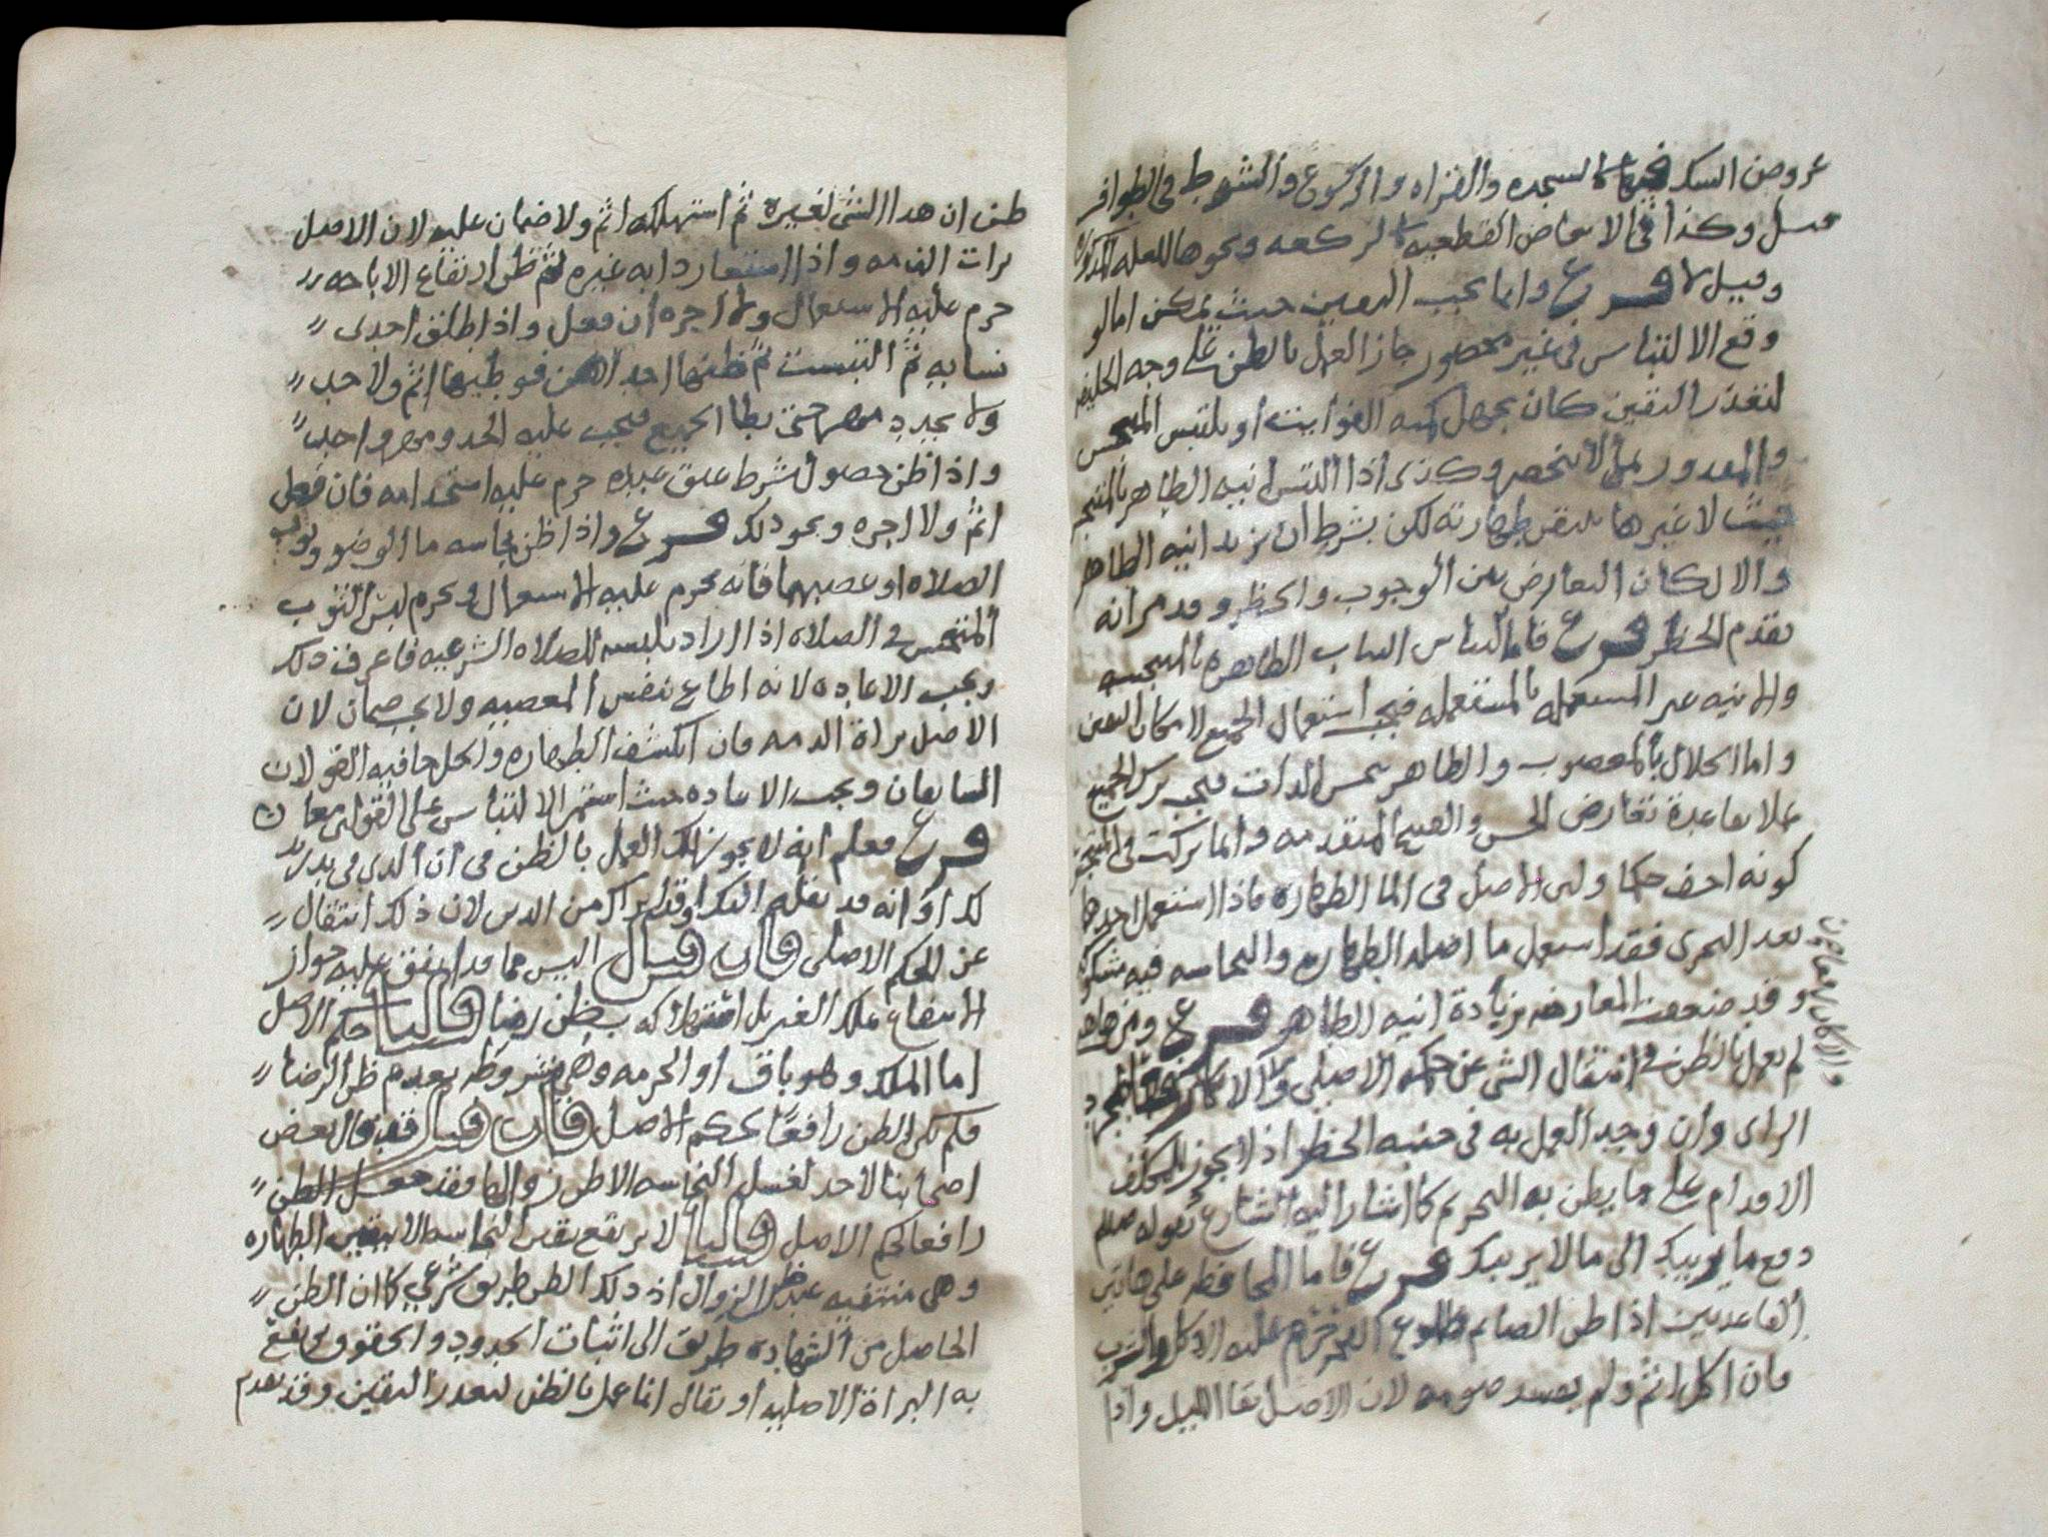 عروض الشك فيها كالسجده والقراه والركوع والشوط فى الطواف
قيل وكذا فى الابعاض القطعيه كالركعه ونحوها للعله المذكوره
وقيل لا فرع وانما يجب اليقين حيث يمكن اما لو
وقع الالتباس فى غير محصور جاز العمل بالظن على وجه
لتعذر اليقين كان يجهل كميه الفوايت او يلتبس المتنجس
بما لا ينحصر وكذى اذا التبس انيه الطاهر بالمتنجس
لا غيرها تيقن طهارته لكن بشرط ان تزيد انيه الطاهر
والا لكان التعارض بين الوجوب والحظر وقد مر انه
يقدم الحظر فرع فاما التباس الثياب الطاهره بالنجسه
والانيه غير المستعمله بالمستعمله فيجب استعمال الجميع لامكان اليقين
واما الحلال بالمغصوب والطاهر بنجس الذات فيجب ترك الجميع
عملا بقاعدة تعارض الحسن والقبيح المتقدمه وانما تركت فى المتنجس
كونه اخف حكما ولان الاصل فى الما الطهاره فاذا استعمل احدها
بعد التحرى فقد استعمل ما اصله الطهاره والنجاسه فيه مشكوك
وقد ضعف المعارض بزيادة انيه الطاهر فرع ومن هاهنا
لم يعمل بالظن فى انتقال الشى عن حكمه الاصلى والا كان
الراى وان وجب العمل به فى جنبه الحظر اذ لا يجوز للمكلف
الاقدام على ما يظن به التحريم كما اشار اليه الشارع بقوله صلعم
دع ما يريبك الى ما لا يريبك فرع فاما المحافظه على هاتين
القاعدتين اذا ظن الصايم طلوع الفجر حرم عليه الاكل والشرب
فان اكل اثم ولم يفسد صومه لان الاصل بقا الليل واذا
ظن ان هذا الشى لغيره ثم استهلكه اثم ولا ضمان عليه لان الاصل
براة الذمه واذا استعار دابه غيره ثم ظن ارتفاع الاباحه
حرم عليه الاستعمال ولا اجره ان فعل واذا طلق احدى
نسايه ثم التبست ثم ظنها احداهن فوطيها اثم ولا حد
ولا يجدد مهر حتى يطا الجميع فيجب عليه الحد ومهر واحد
واذا ظن حصول شرط عتق عبده حرم عليه استخدامه فان فعل
اثم ولا اجره ونحو ذلك فرع واذا ظن نجاسه ما الوضو وثوب
الصلاه او غصبهما فانه يحرم عليه الاستعمال ويحرم لبس الثوب
المتنجس فى الصلاه اذا اراد بلبسه الصلاه الشرعيه فاعرف ذلك
ويجب الاعاده لانه اطاع بنفس المعصيه ولا يجب ضمان لان
الاصل براة الذمه فان انكشف الطهاره والحل جا فيه القولان
السابقان ويجب الاعاده حيث استمر الالتباس على القولين معا
فرع فعلم انه لا يجوز لك العمل بالظن فى ان الذى فى يد زيد
لك او انه قد نقله اليك او قد ابراك من الدين لان ذلك انتقال
عن الحكم الاصلى فان قيل اليس مما قد اتفق عليه جواز
الانتفاع بملك الغير بل استهلاكه بظن رضا قلنا حكم الاصل
اما الملك وهو باق او الحرمه وهى مشروطه بعدم ظن الرضا
فلم يكن الظن رافعا لحكم الاصل فان قيل فقد قال بعض
اصحابنا لا حد لغسل النجاسه الا ظن زوالها فقد جعل الظن
رافعا لحكم الاصل قلنا لا يرتفع يقين النجاسه الا بيقين الطهاره
وهى منتفيه عند ظن الزوال اذ ذلك الظن طريق شرعى كما ان الظن
الحاصل من الشهاده طريق الى اثبات الحدود والحقوق
به البراة الاصليه او يقال انما عمل بالظن لتعذر اليقين وقد تقدم